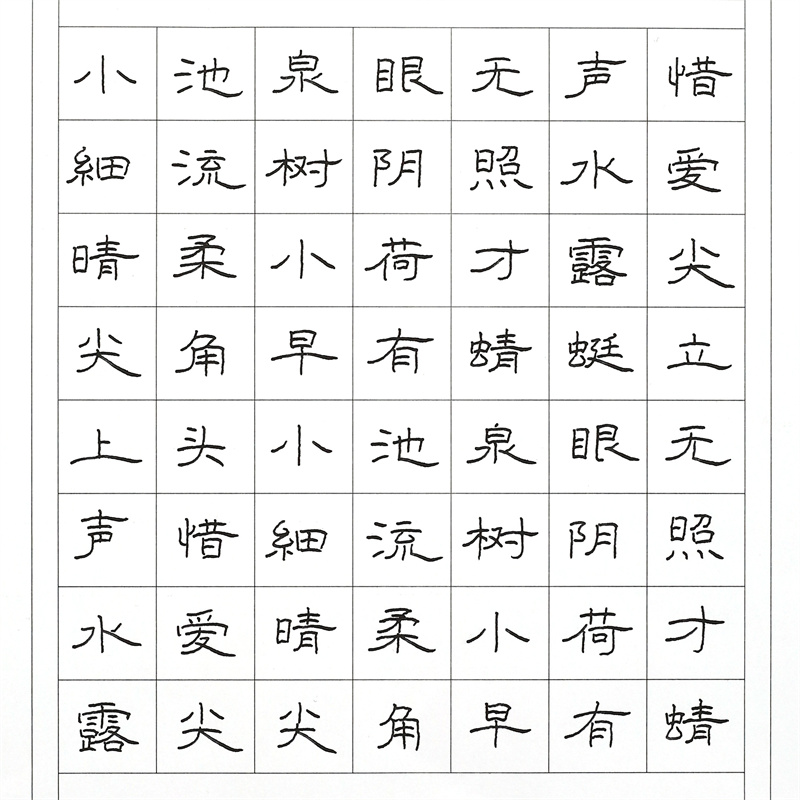 小池泉眼无声惜
細流树阴照水爱
晴柔小荷才露尖
尖角早有蜻蜓立
上头小池泉眼无
声惜細流树阴照
水爱晴柔小荷才
露尖尖角早有蜻